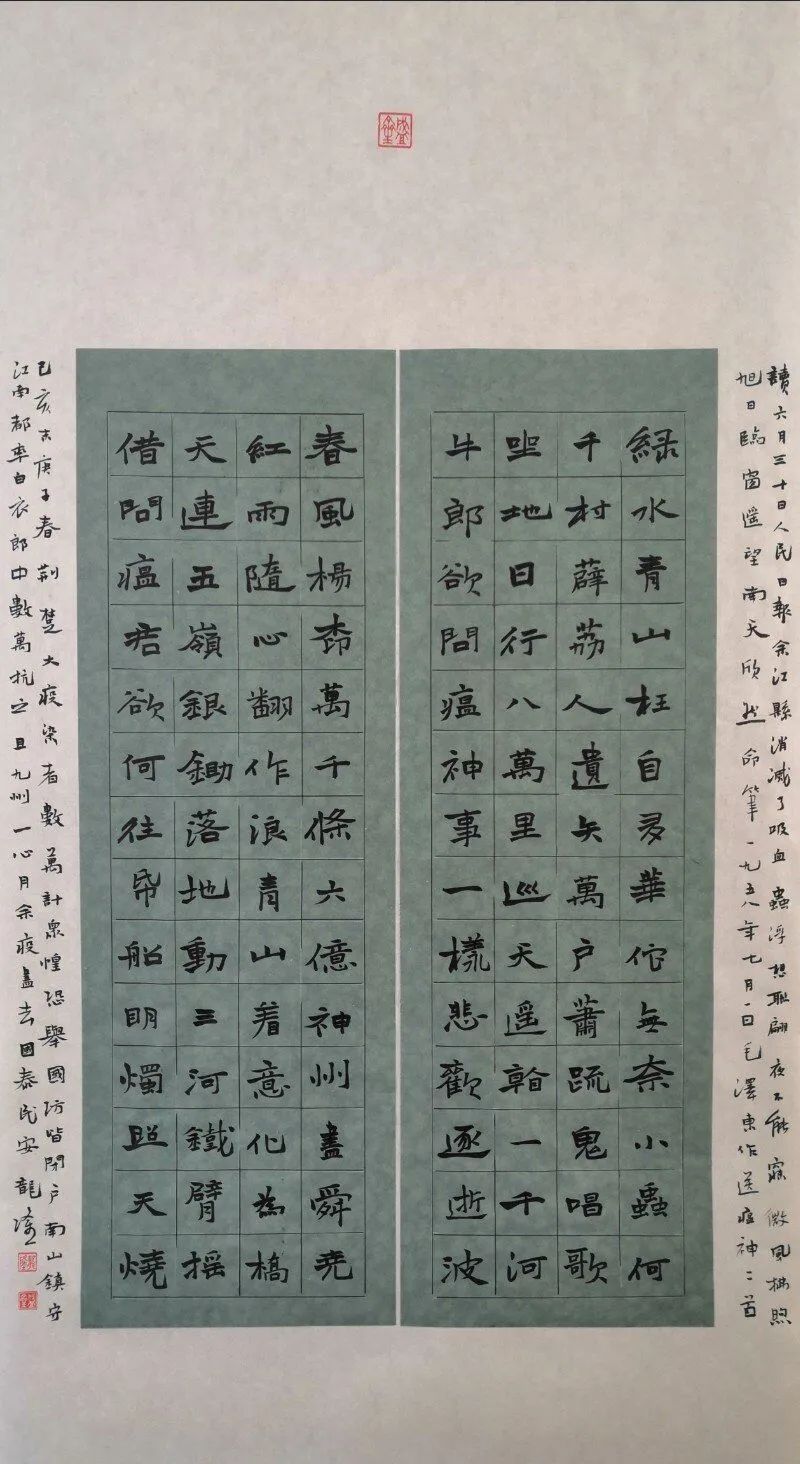 讀六月三十日人民日報余江縣消滅了吸血蟲浮想聯翩夜不能寐微風拂煦
旭日臨窗遥望南天欣然命筆一九五八年七月一日毛澤東作送瘟神二首
緑水青山枉自多華佗無奈小蟲何
千村薜荔人遺矢萬户蕭疏鬼唱歌
坐地日行八萬里巡天遥看一千河
牛郎欲問瘟神事一樣悲歡逐逝波
春風楊柳萬千條六億神州盡舜堯
紅雨隨心翻作浪青山着意化為橋
天連五嶺銀鋤落地動三河鐵臂摇
借問瘟君欲何往紙船明燭照天燒
己亥末庚子春荊楚大疫染者數萬計衆惶恐舉國防皆閉户南山鎮守
江南都率白衣郎中數萬抗之且九州一心月余疫盡去國泰民安龍